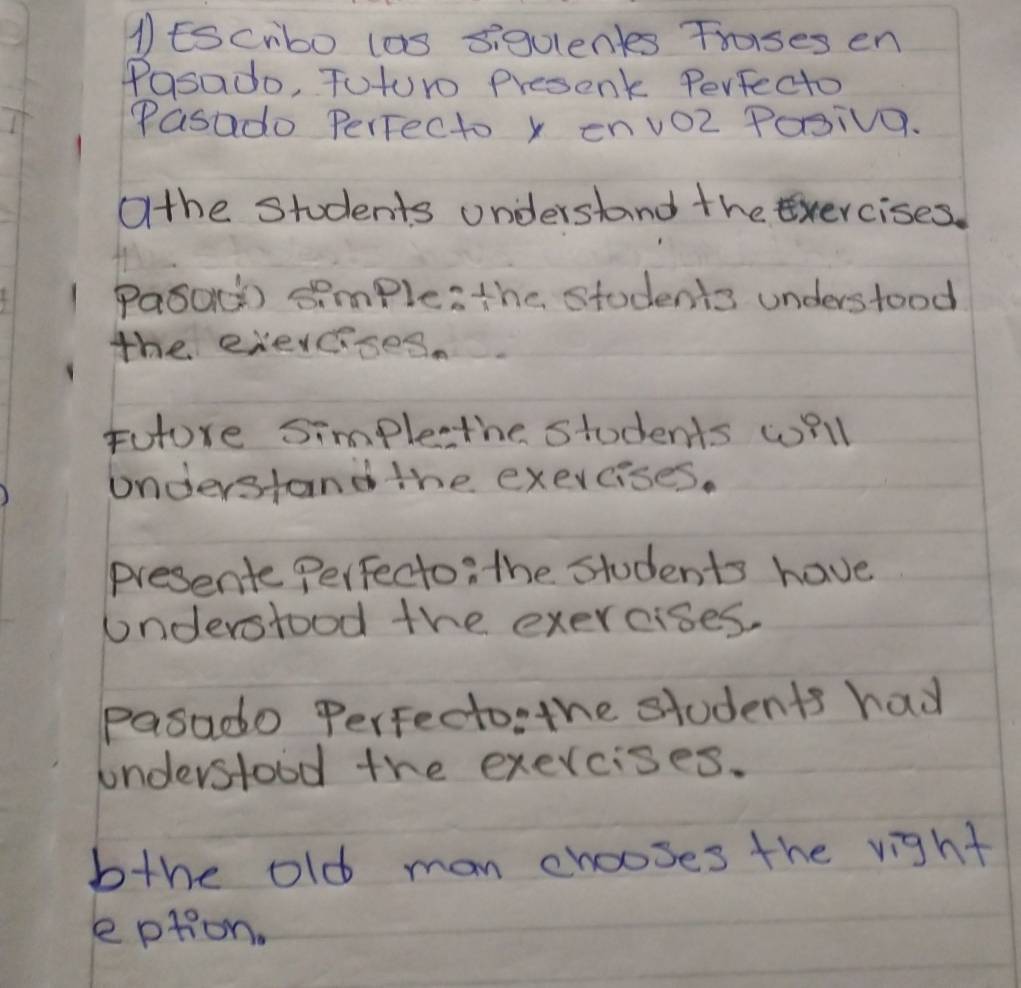 1) Escribo las siguientes Frases en
Pasado, Futuro Presente Perfecto
Pasado Perfecto y en voz Pasiva.
a the students understand the Exercises.
Pasado simple: the students understood
the exercises.
Future simple: the students will
understand the exercises.
presente Perfecto: the students have
understood the exercises.
pasado Perfecto: the students had
understood the exercises.
b the old man chooses the right
eption.